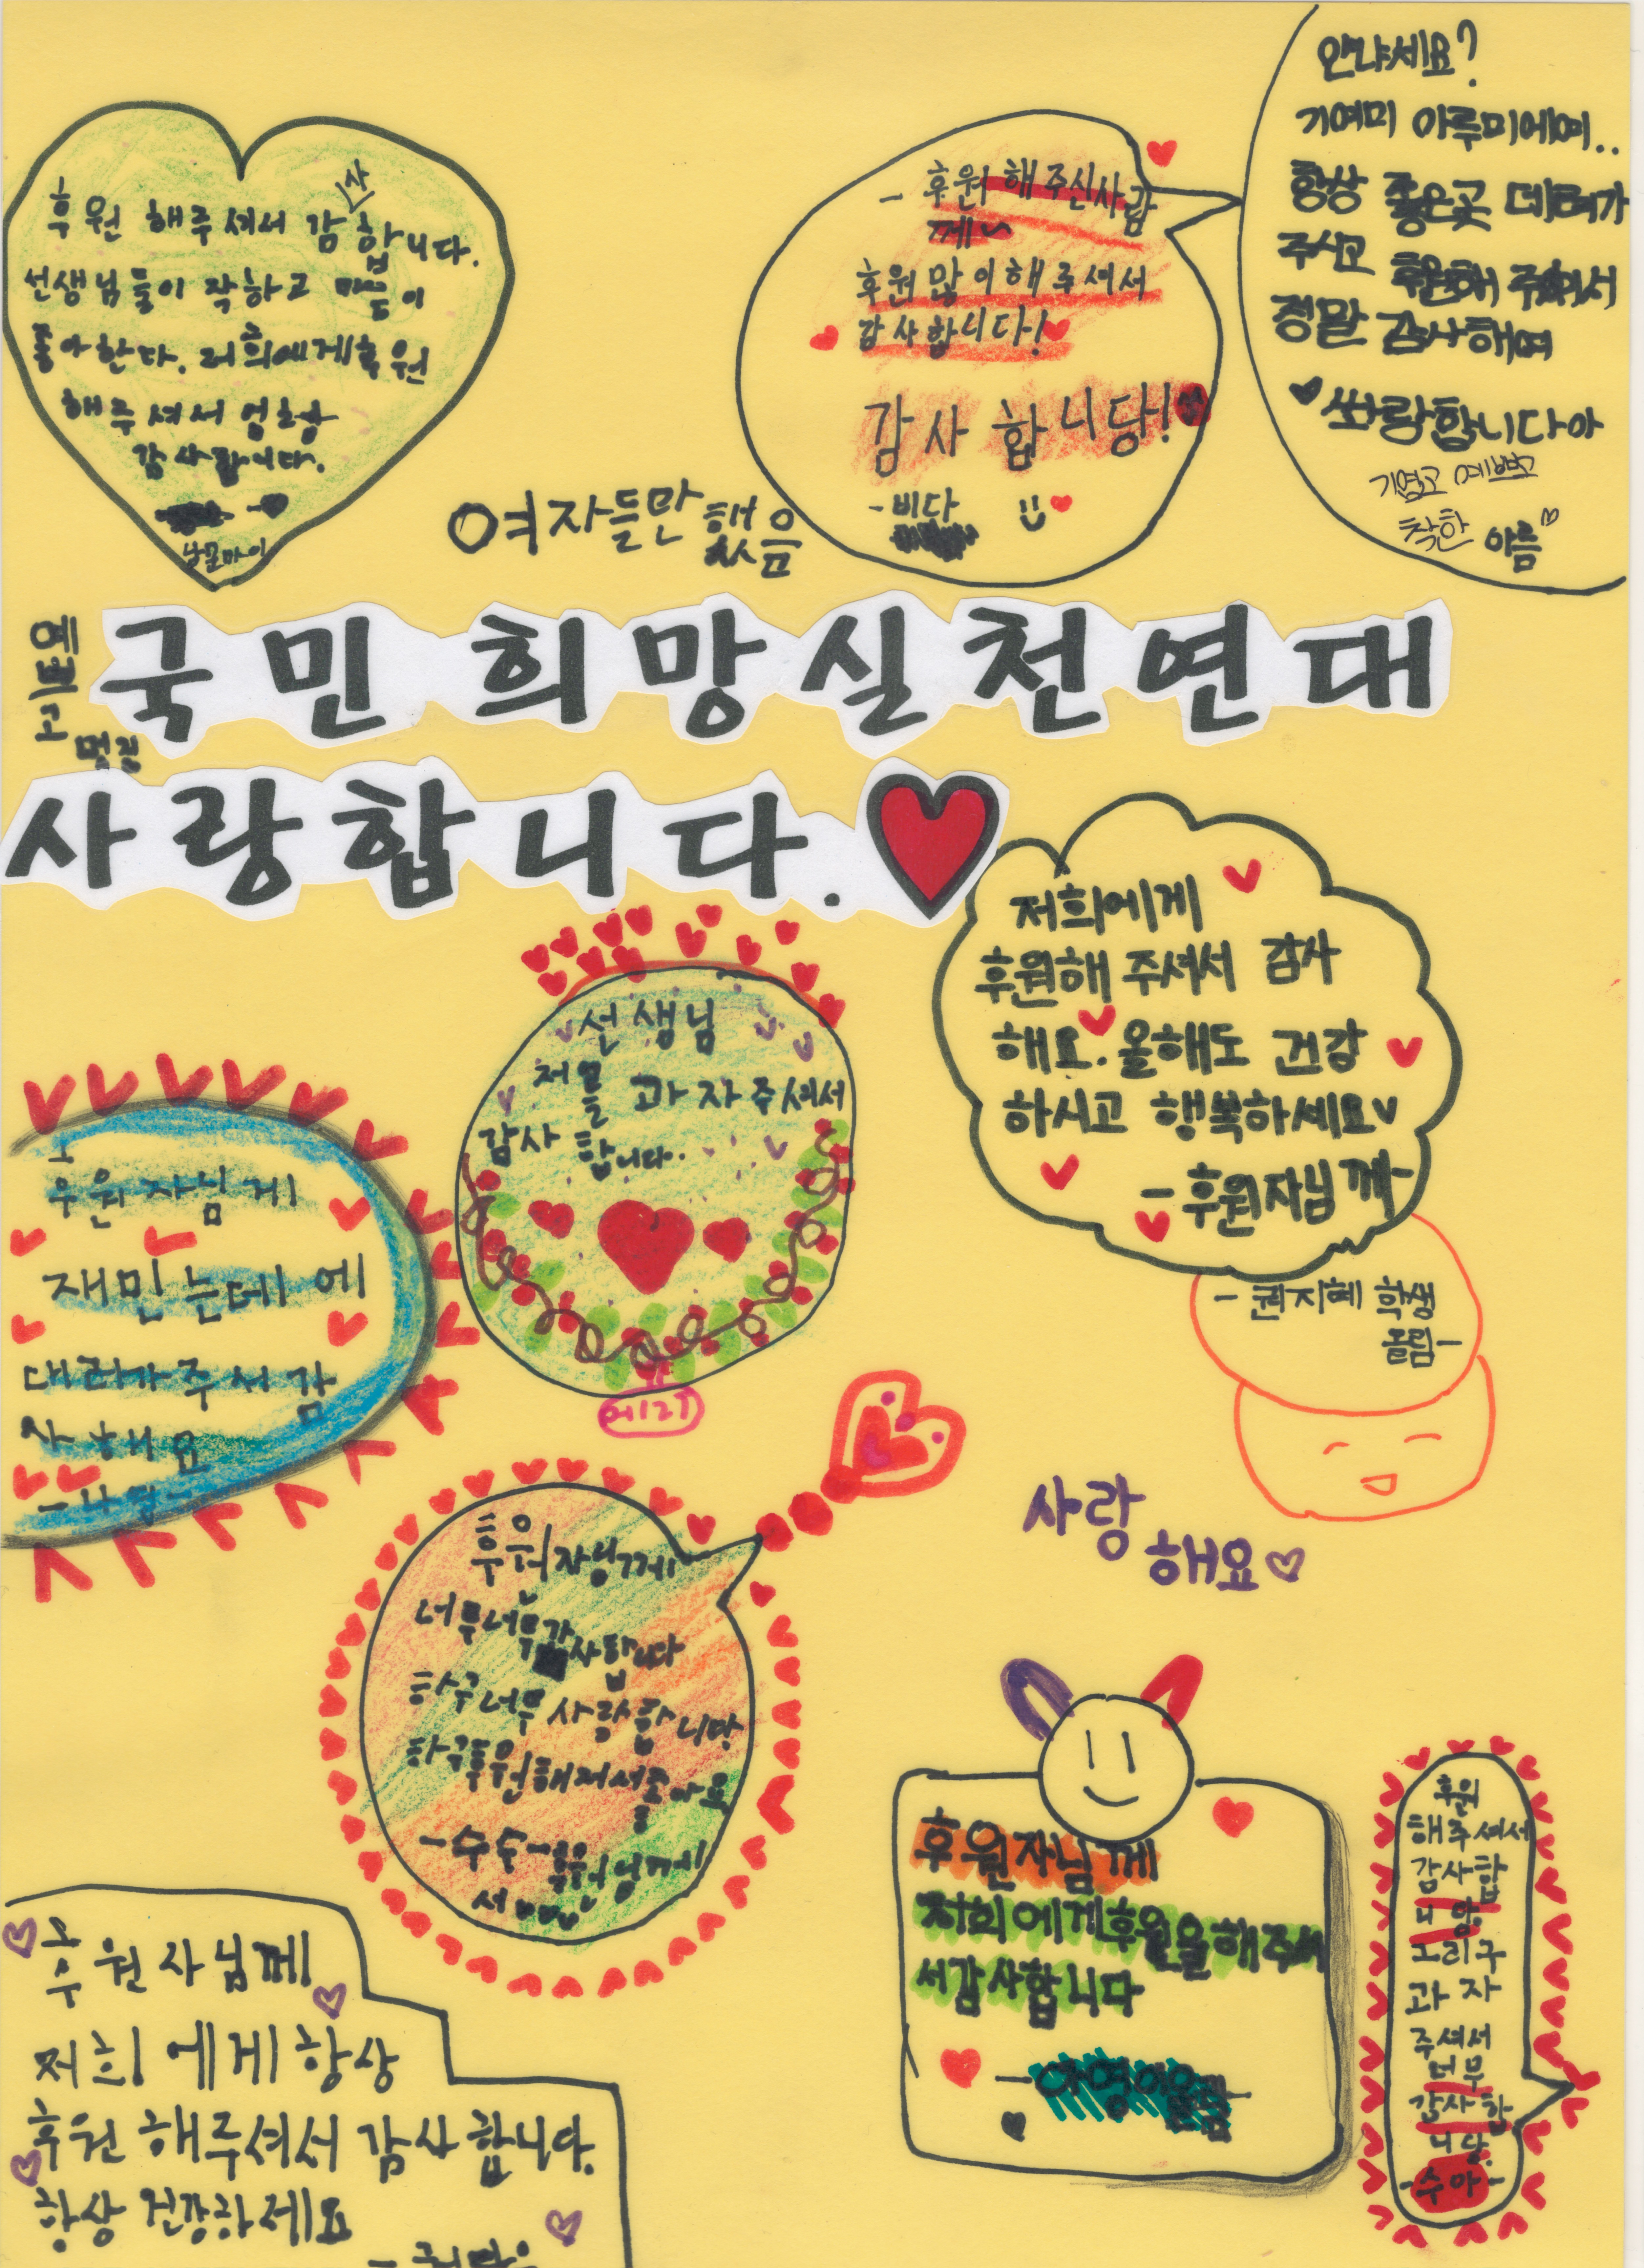 후원 해주셔서 감사합니다.
선생님들이 착하고 마음이
좋아한다. 저희에게 후원
해주셔서 엄청
감사합니다.
- 후원해주신사람
께~
후원 많이해주셔서
감사합니다!
감사합니당!
-비다
안냐세요?
기여미 아루미에여..
항상 좋은곳 데려가
주시고 후원해 주셔서
정말 감사해여
쏴랑합니다아
기엽고 예쁘고
착한 아름
여자들만 했음
예쁘고 멋진
국민희망실천연대
사랑합니다.
저희에게
후원해 주셔서 감사
해요. 올해도 건강
하시고 행복하세요
-후원자님께-
-권지혜 학생
올림-
선생님
저믈 과자주셔서
감사 합니다.
후원자님게
재민는데에
대려가주서감
사해요
사랑
해요
후원자님께
너무너무감사합니다
하구너무 사랑합니다
하구후원해저서좋아요
후원자님께
저희에게후원을해주셔
서감사합니다
후원
해주셔서
감사합
니당.
그리구
과자
주셔서
너무
감사합
니당.
-수아-
후원사님께
저희에게항상
후원해주셔서 감사합니다.
항상 건강하세요